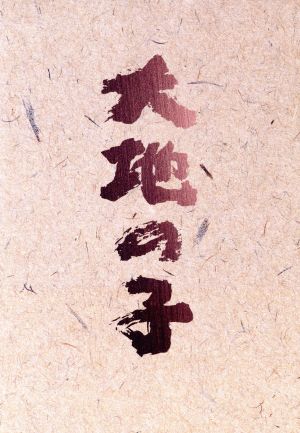 大地の子